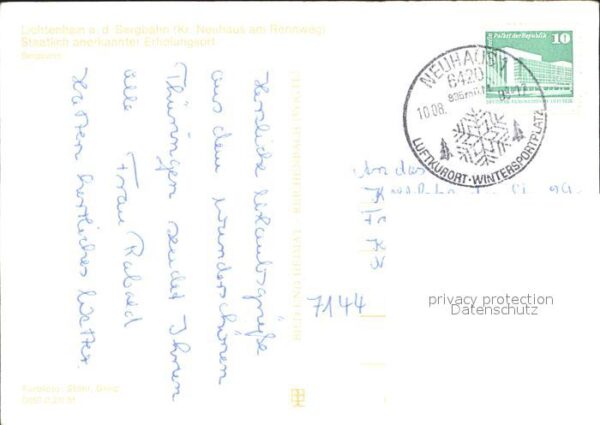 Lichtenhain a. d. Bergbahn (Kr. Neuhaus am Rennweg)
Staatlich anerkannter Erholungsort
Bergbahn
Herzliche Urlaubsgrüße
aus dem wunderschönen
Thüringen sendet Ihnen
alle Frau Rabald
Hatten herrliches Wetter.
BILD UND HEIMAT REICHENBACH
Palast der Republik 10
NEUHAUS
6420
835m
10.08.
LUFTKURORT · WINTERSPORTPLATZ
An das
7144
privacy protection
Datenschutz